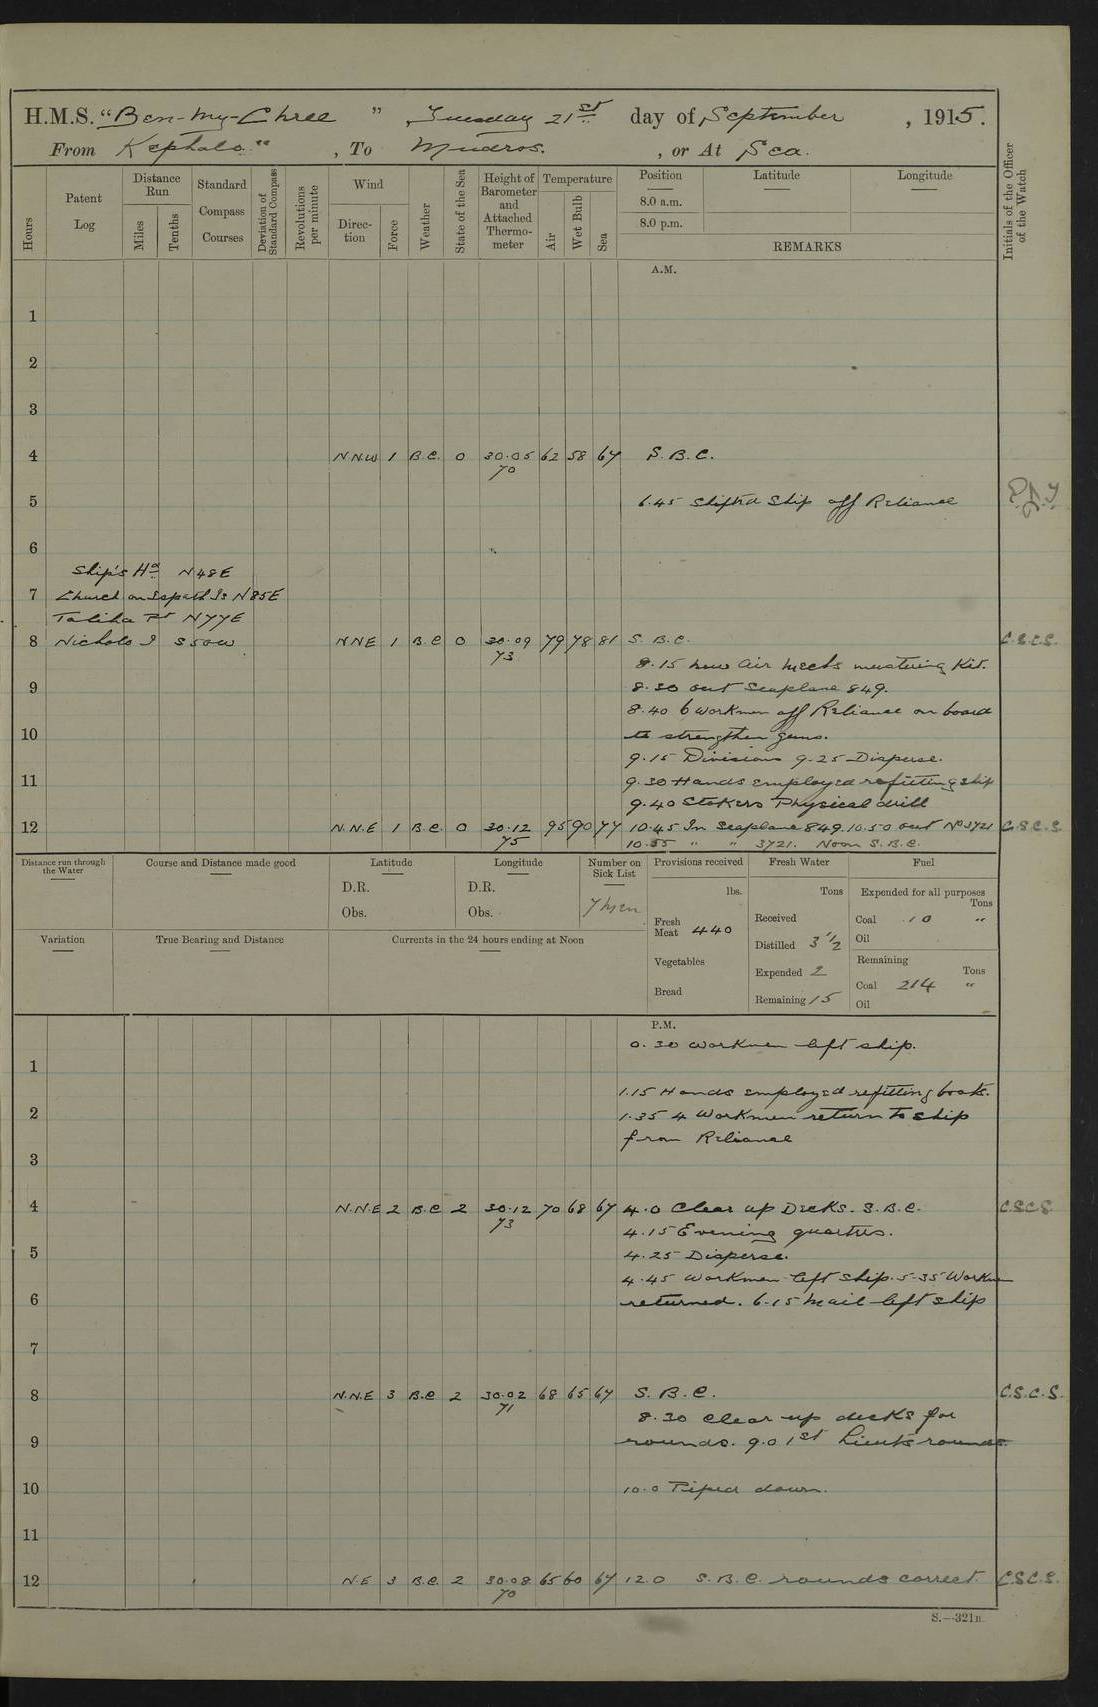 H.M.S. "Ben-my-Chree" , Tuesday 21st day of September , 1915.
From Kephalo " , To Mudros. , or At Sea.
Hours
Patent Log
Distance Run
Miles
Tenths
Standard Compass Courses
Deviation of Standard Compass
Revolutions per minute
Wind
Direction
Force
Weather
State of the Sea
Height of Barometer and Attached Thermometer
Temperature
Air
Wet Bulb
Sea
Position
8.0 a.m.
8.0 p.m.
Latitude
Longitude
REMARKS
Initials of the Officer of the Watch
A.M.
1
2
3
4 N.N.W 1 B.C. 0 30.05 62 58 67 S.B.C.
70
5 6.45 Shifted Ship off Reliance
6
Ship's Hd N48E
7 Church on Ispath Is N85E
Taliha Pt N77E
8 Nicholo I S50W NNE 1 B.C 0 30.09 79 78 81 S. B.C. C.S.C.S.
73
8.15 new air mechs mustering Kit.
9 8.30 out Seaplane 849.
8.40 6 workmen off Reliance on board
10 to strengthen guns.
9.15 Divisions 9.25 Disperse.
11 9.30 Hands employed refitting ship
9.40 Stokers Physical drill
12 N.N.E 1 B.C. 0 30.12 95 90 77 10.45 In Seaplane 849. 10.50 out No 3721 C.S.C.S.
75 10.55 " " 3721. Noon S.B.C.
Distance run through the Water
Course and Distance made good
Latitude
D.R.
Obs.
Longitude
D.R.
Obs.
Number on Sick List
7 men
Variation
True Bearing and Distance
Currents in the 24 hours ending at Noon
Provisions received
lbs.
Fresh Meat 440
Vegetables
Bread
Fresh Water
Tons
Received
Distilled 3 1/2
Expended 2
Remaining 15
Fuel
Expended for all purposes
Tons
Coal 10 "
Oil
Remaining
Tons
Coal 214 "
Oil
P.M.
0.30 workmen left ship.
1
1.15 Hands employed refitting boats.
2 1.35 4 Workmen return to ship
from Reliance
3
4 N.N.E 2 B.C 2 30.12 70 68 67 4.0 Clear up Decks. S.B.C. C.S.C.S.
73
4.15 Evening quarters.
5 4.25 Disperse.
4.45 workmen left ship. 5.35 Workmen
6 returned. 6.15 mail left ship
7
8 N.N.E 3 B.C 2 30.02 68 65 67 S.B.C. C.S.C.S.
71
8.30 Clear up decks for
9 rounds. 9.0 1st Lieuts rounds
10 10.0 Piped down.
11
12 N.E 3 B.C. 2 30.08 65 60 67 12.0 S.B.C. rounds correct. C.S.C.S.
70
S.—321B.